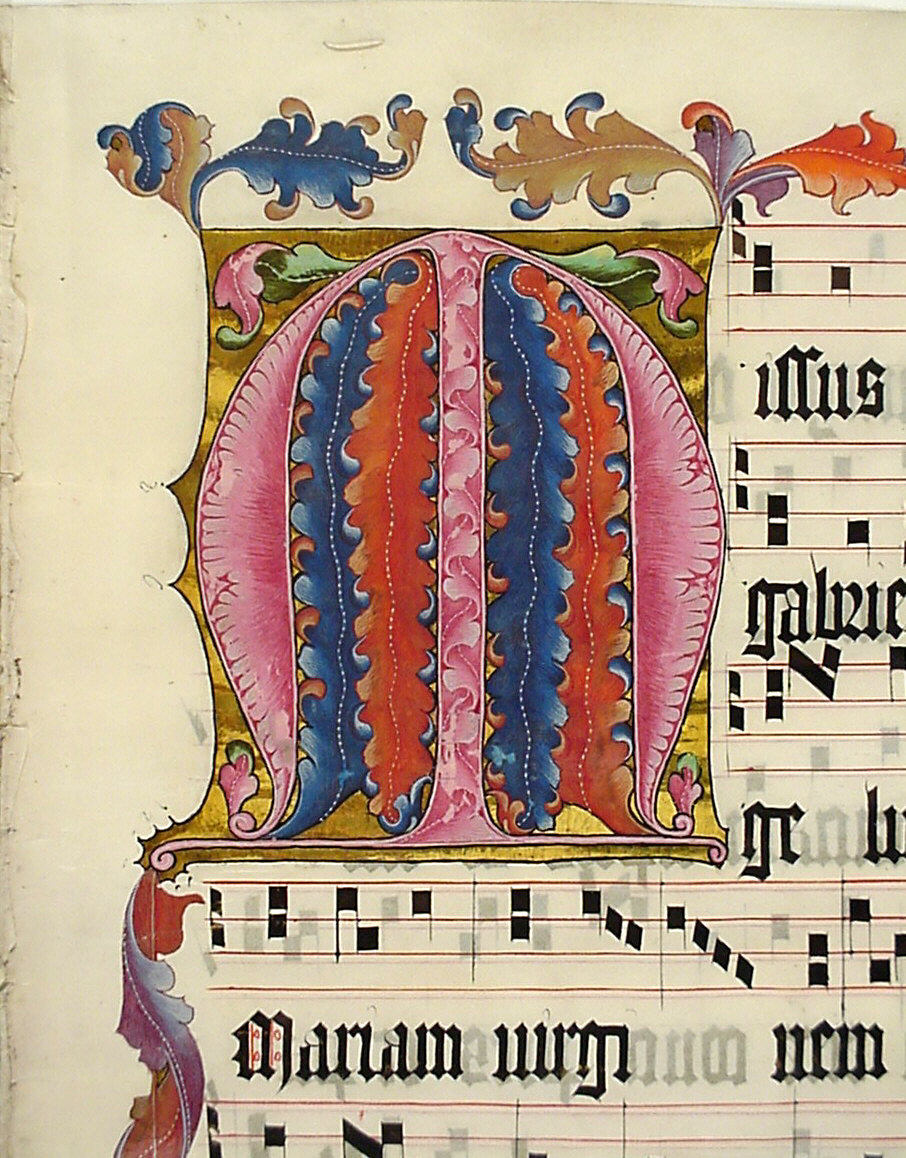 M issus
gabrie
ge lu
Mariam uirgi nem